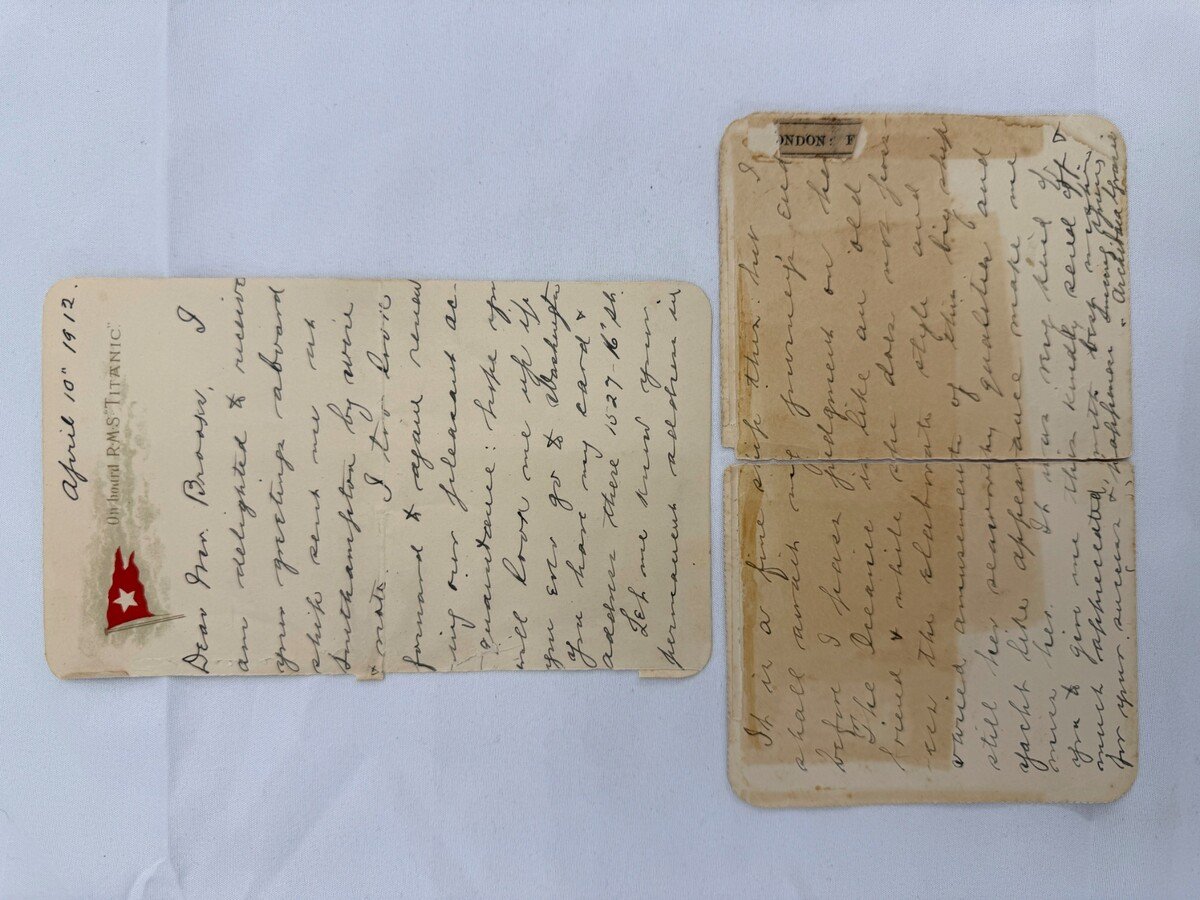 April 10" 1912.
On board R.M.S. "TITANIC".
Dear Mr. Brooks, I
am delighted & receive
your greetings aboard
ship sent me at
Southampton by wire
& note. I too look
forward & again renew
ing our pleasant ac-
quaintance: hope you
will look me up if
you ever go to Washington
you have my card &
address there 1527-16th St.
Let me know your
permanent address in
ONDON: E
It is a fine ship this: but I
shall await my journey's end
before I pass judgment on her
The Oceanic is like an old
friend & while she does not poss-
ess the elaborate style and
varied amusement of this big ship
still her seaworthy qualities and
yacht like appearance make me
miss her. It was very kind of
you to give me this kindly send off &
much appreciated with best wishes
for your success & happiness
Sincerely Yours
Archibald Gracie